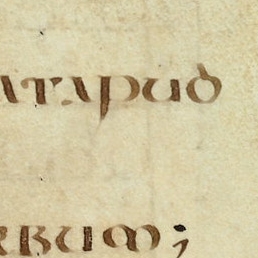 atapud
rbum;